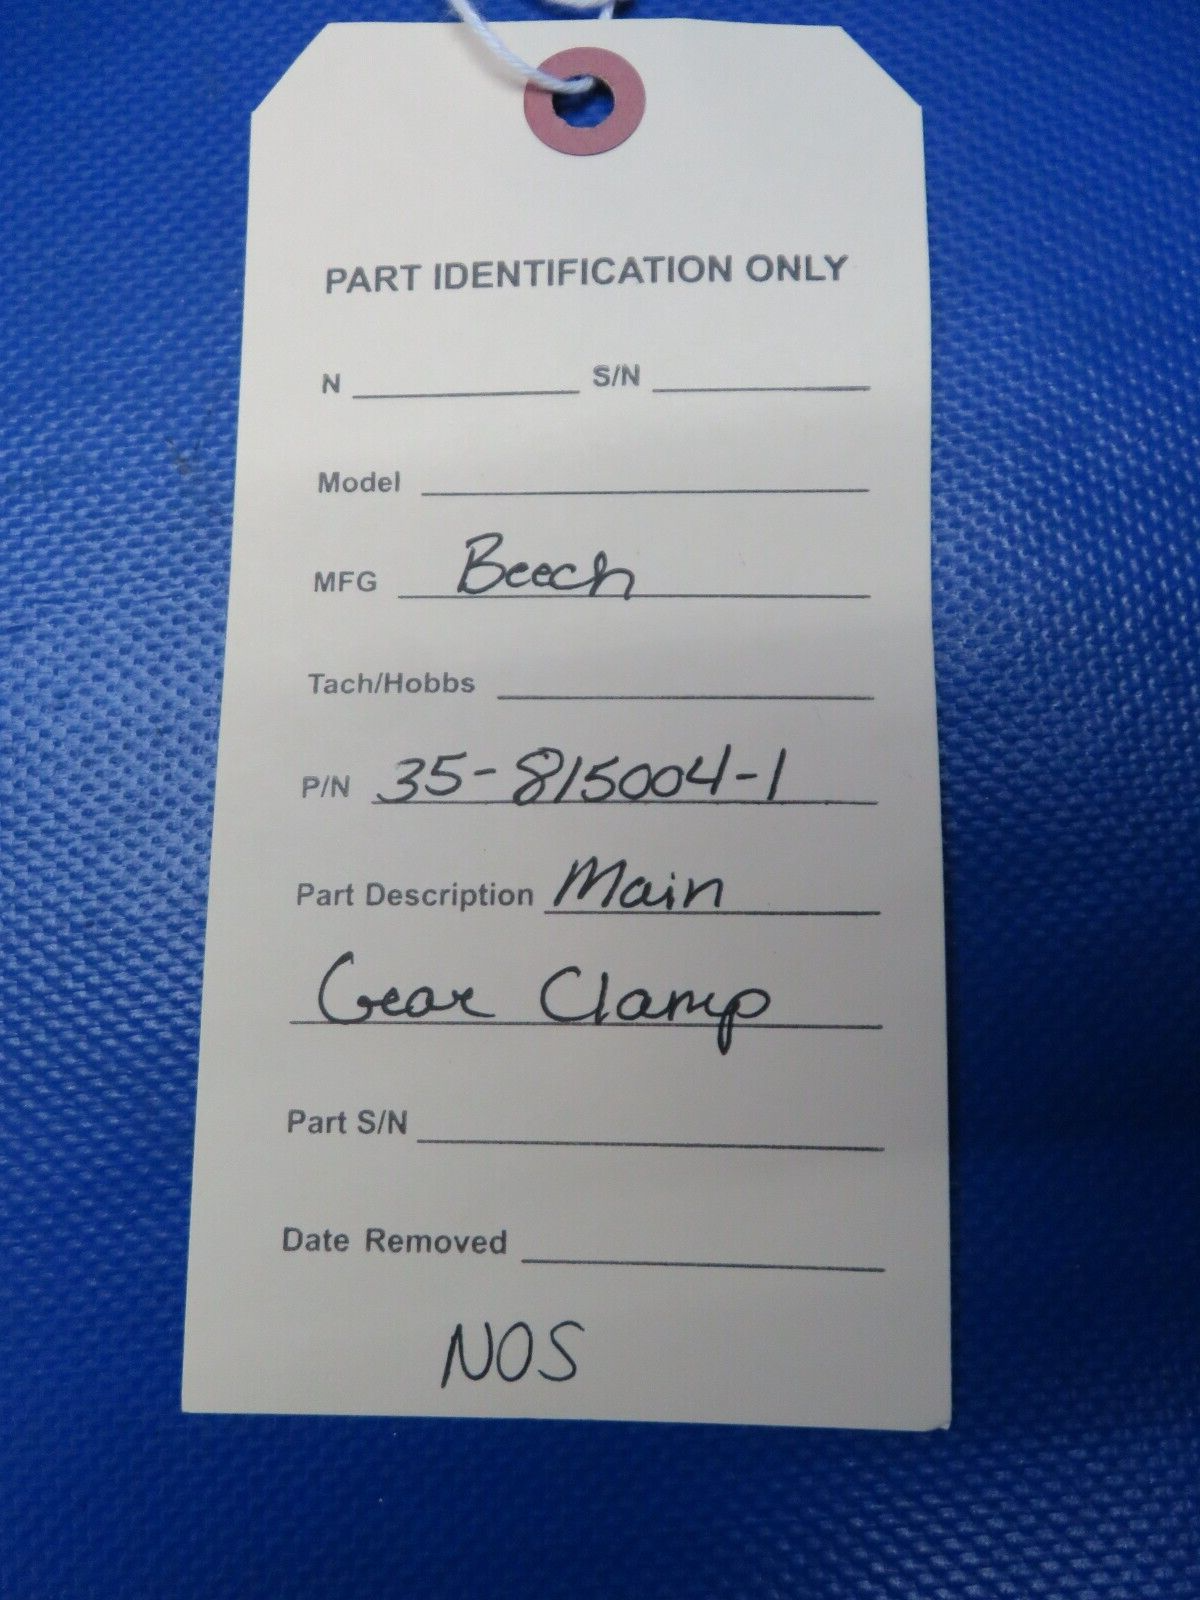 PART IDENTIFICATION ONLY
N S/N
Model
MFG Beech
Tach/Hobbs
P/N 35-815004-1
Part Description Main
Gear Clamp
Part S/N
Date Removed
NOS